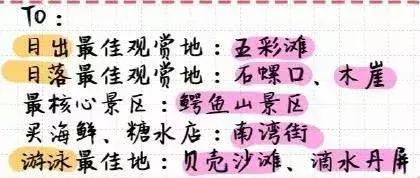 To：
日出最佳观赏地：五彩滩
日落最佳观赏地：石螺口、木崖
最核心景区：鳄鱼山景区
买海鲜、糖水店：南湾街
游泳最佳地：贝壳沙滩、滴水丹屏